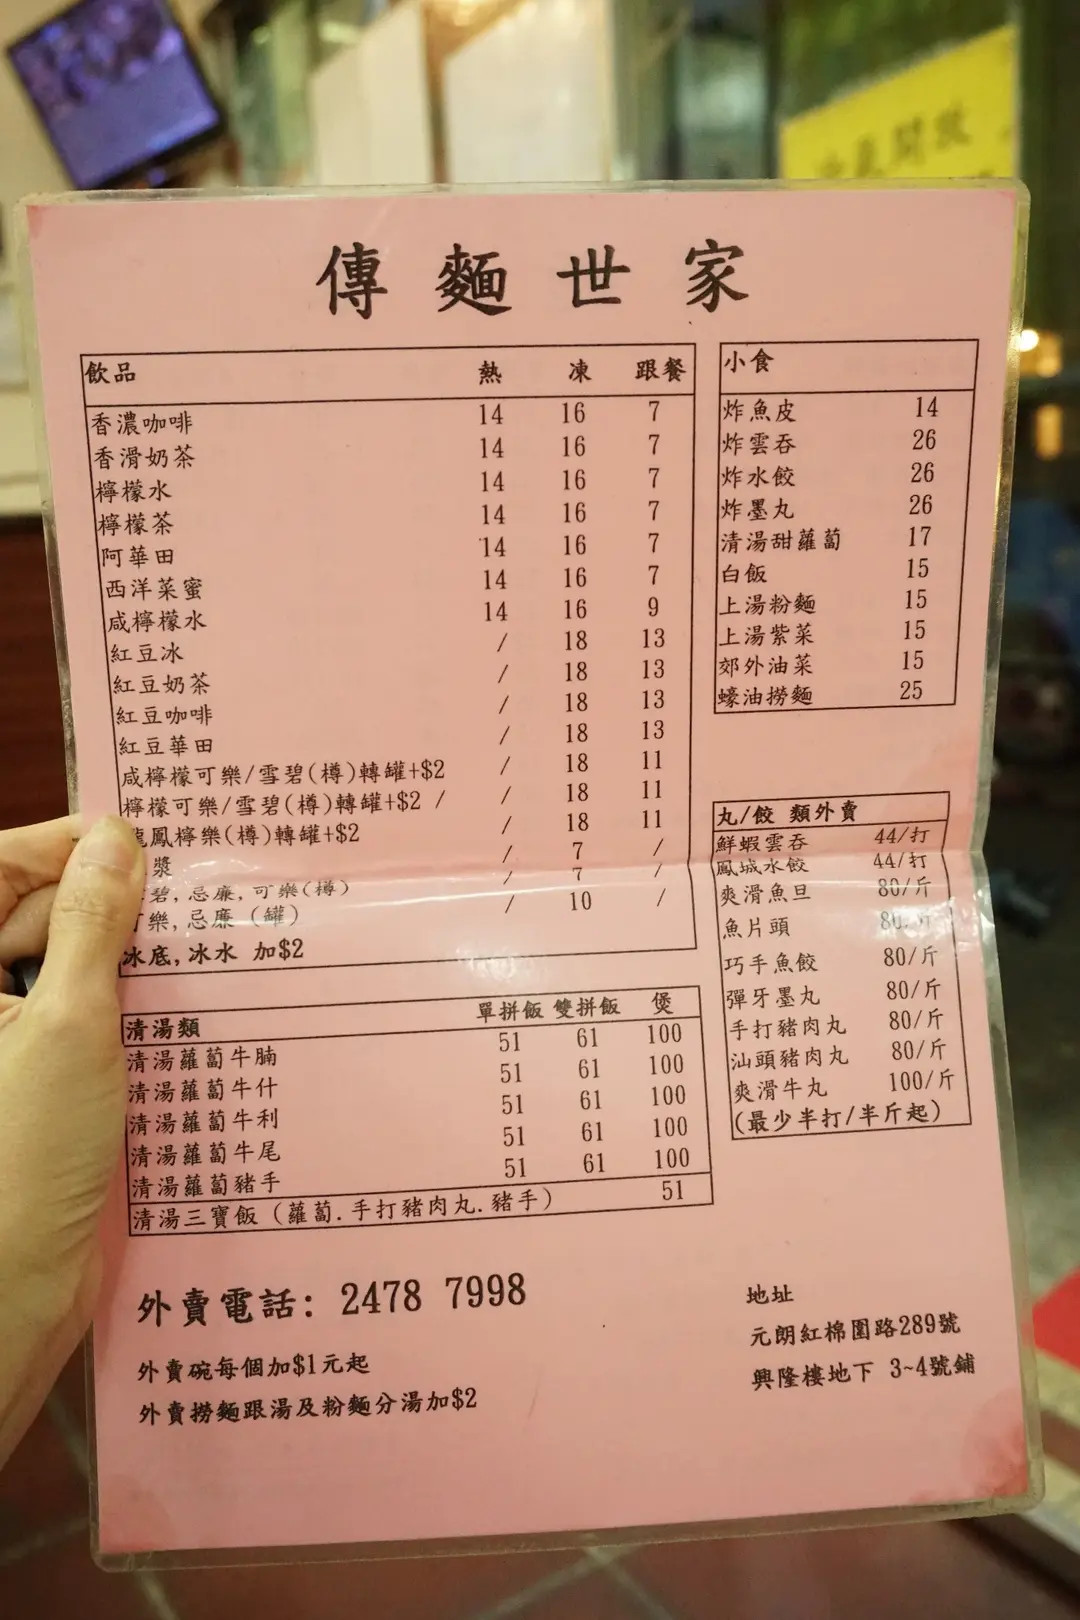 傳麵世家
飲品 熱 凍 跟餐
香濃咖啡 14 16 7
香滑奶茶 14 16 7
檸檬水 14 16 7
檸檬茶 14 16 7
阿華田 14 16 7
西洋菜蜜 14 16 7
咸檸檬水 14 16 9
紅豆冰 / 18 13
紅豆奶茶 / 18 13
紅豆咖啡 / 18 13
紅豆華田 / 18 13
咸檸檬可樂/雪碧(樽)轉罐+$2 / 18 11
檸檬可樂/雪碧(樽)轉罐+$2 / / 18 11
鳳檸樂(樽)轉罐+$2 / 18 11
漿 / 7 /
碧, 忌廉, 可樂(樽) / 7 /
樂, 忌廉 (罐) / 10 /
冰底, 冰水 加$2
小食
炸魚皮 14
炸雲吞 26
炸水餃 26
炸墨丸 26
清湯甜蘿蔔 17
白飯 15
上湯粉麵 15
上湯紫菜 15
郊外油菜 15
蠔油撈麵 25
丸/餃 類外賣
鮮蝦雲吞 44/打
鳳城水餃 44/打
爽滑魚旦 80/斤
魚片頭 80/斤
巧手魚餃 80/斤
彈牙墨丸 80/斤
手打豬肉丸 80/斤
汕頭豬肉丸 80/斤
爽滑牛丸 100/斤
(最少半打/半斤起)
清湯類 單拼飯 雙拼飯 煲
清湯蘿蔔牛腩 51 61 100
清湯蘿蔔牛什 51 61 100
清湯蘿蔔牛利 51 61 100
清湯蘿蔔牛尾 51 61 100
清湯蘿蔔豬手 51 61 100
清湯三寶飯 (蘿蔔.手打豬肉丸.豬手) 51
外賣電話: 2478 7998
外賣碗每個加$1元起
外賣撈麵跟湯及粉麵分湯加$2
地址
元朗紅棉圍路289號
興隆樓地下 3~4號鋪